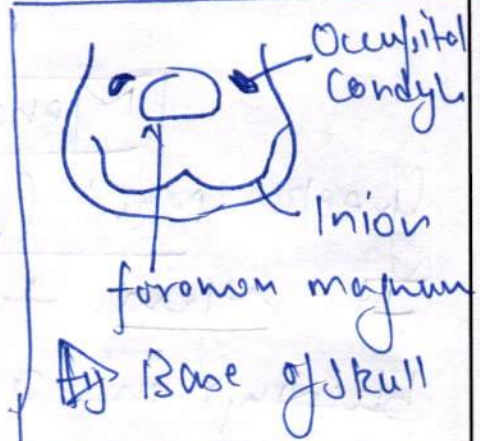 Occupital
Condyle
Inion
foramen magnum
fig Base of skull